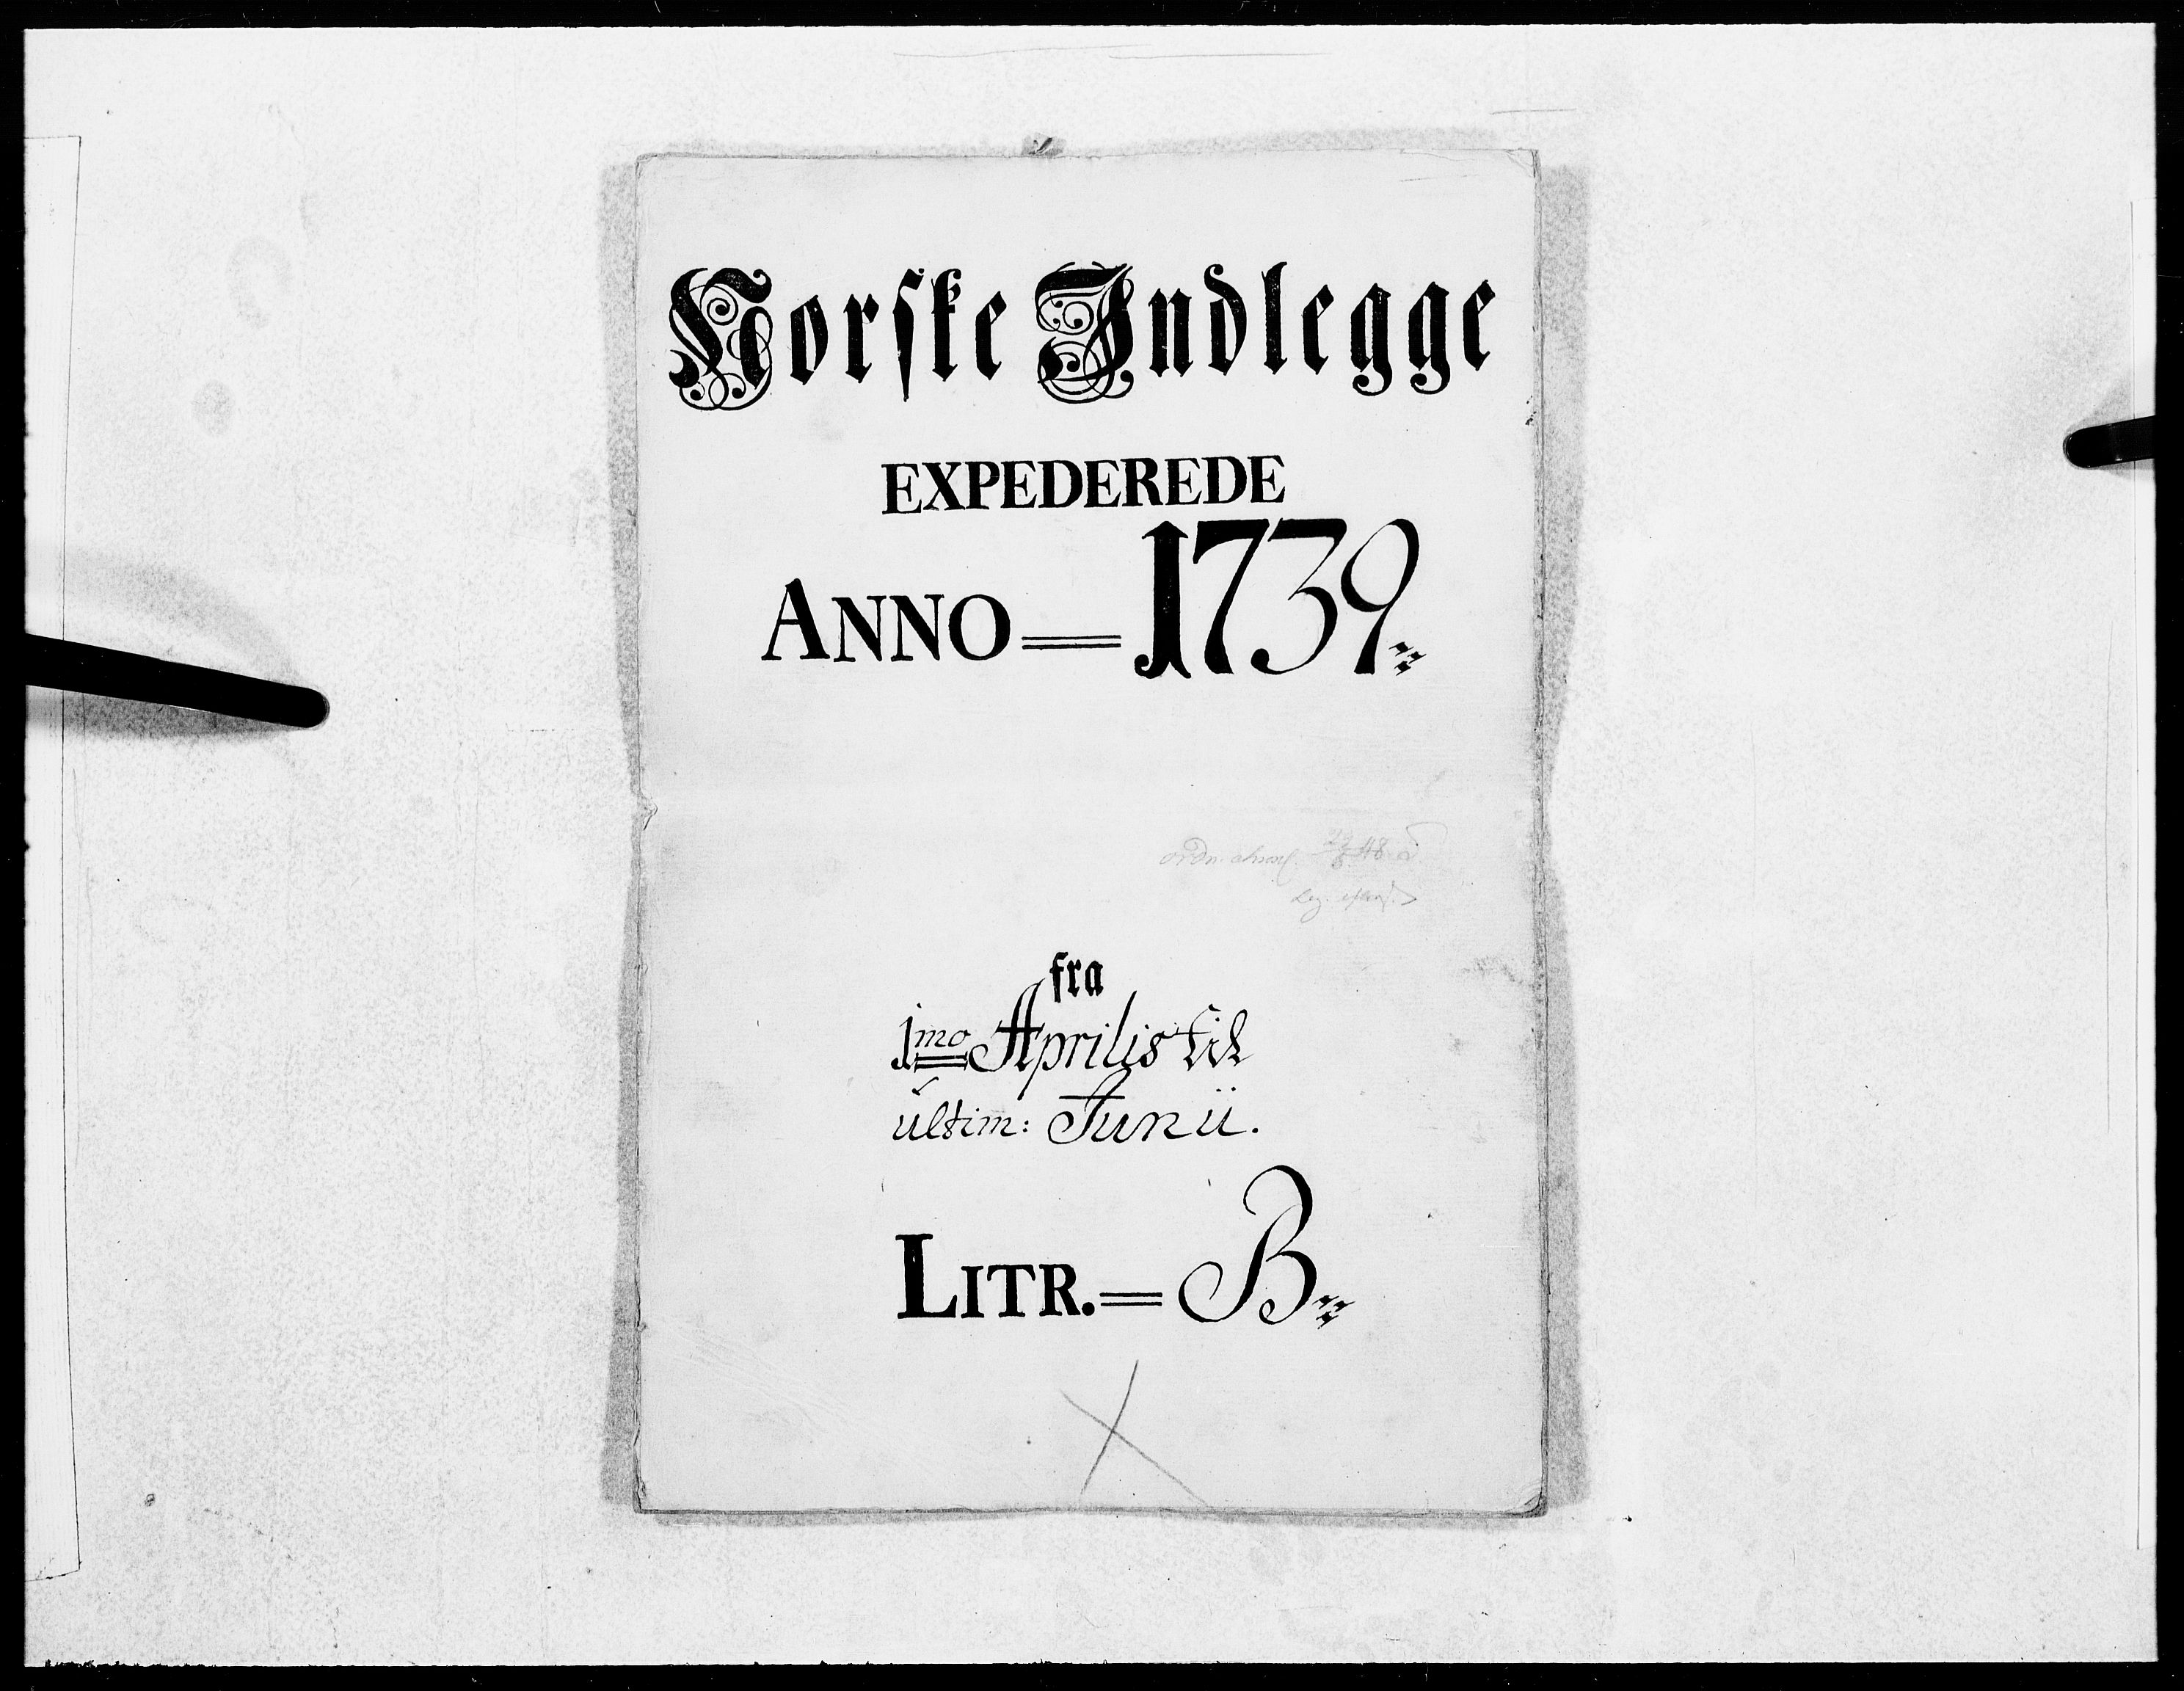 Norske Indlegge
EXPEDEREDE
ANNO = 1739
ordn.
fra
1mo Aprilis til
ultim: Junii.
LITR. = B